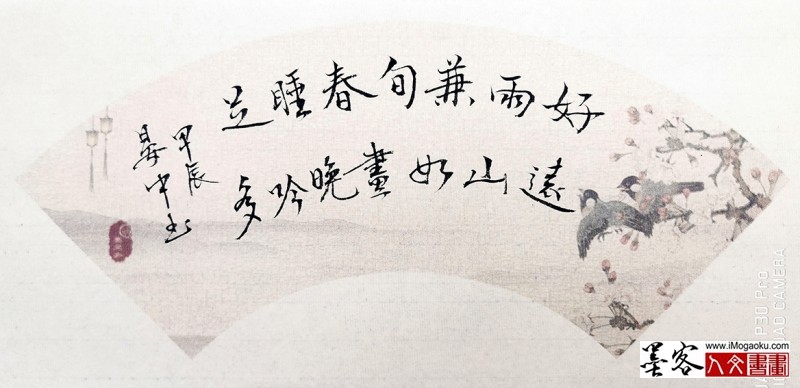 好雨兼旬春睡足
遠山如畫晚吟多
甲辰
晏中书
墨客
www.iMogaoku.com
人文書畫
P30 Pro
AD CAMERA